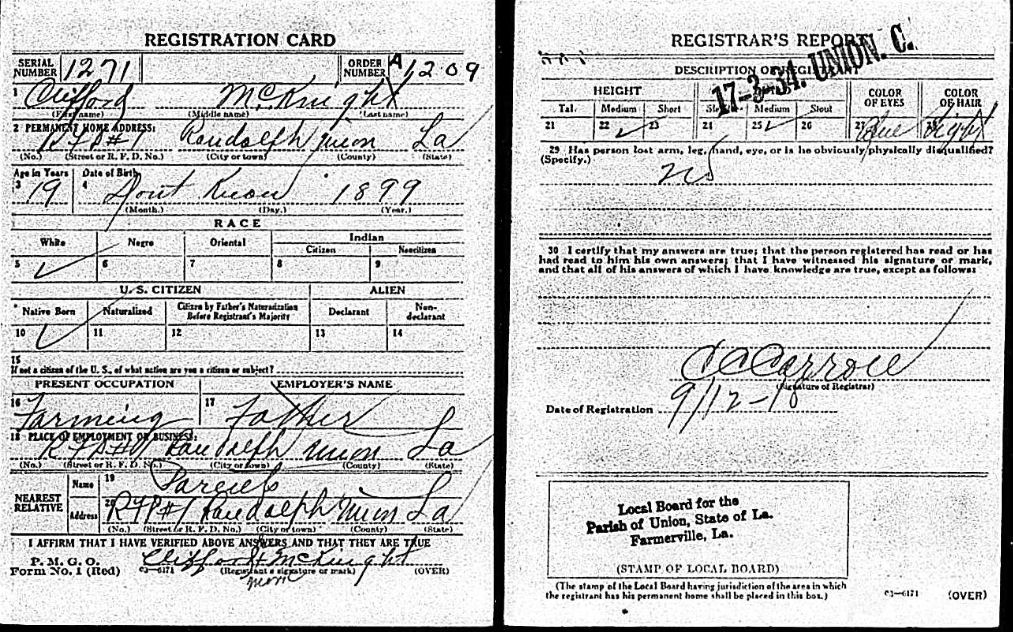 REGISTRATION CARD
SERIAL NUMBER 1271 ORDER NUMBER A 1209
1 Clifford McKnight
(First name) (Middle name) (Last name)
2 PERMANENT HOME ADDRESS:
RFD#1 Randolph Union La
(No.) (Street or R. F. D. No.) (City or town) (County) (State)
Age in Years Date of Birth
3 19 4 Dont Know 1899
(Month.) (Day.) (Year.)
RACE
White Negro Oriental Indian
Citizen Noncitizen
5 ✓ 6 7 8 9
U. S. CITIZEN ALIEN
Native Born Naturalized Citizen by Father's Naturalization Before Registrant's Majority Declarant Non-declarant
10 ✓ 11 12 13 14
15
If not a citizen of the U. S., of what nation are you a citizen or subject?
PRESENT OCCUPATION EMPLOYER'S NAME
16 Farming 17 Father
18 PLACE OF EMPLOYMENT OR BUSINESS:
RFD#1 Randolph Union La
(No.) (Street or R. F. D. No.) (City or town) (County) (State)
NEAREST RELATIVE
Name 19
Address 20 RFD#1 Randolph Union La
(No.) (Street or R. F. D. No.) (City or town) (County) (State)
I AFFIRM THAT I HAVE VERIFIED ABOVE ANSWERS AND THAT THEY ARE TRUE
P. M. G. O.
Form No. 1 (Red) C3—6171 Clifford McKnight
(Registrant's signature or mark) (OVER)
REGISTRAR'S REPORT
17-3-34. UNION. C.
DESCRIPTION OF REGISTRANT
HEIGHT COLOR OF EYES COLOR OF HAIR
Tall Medium Short Slender Medium Stout
21 22 ✓ 23 24 25 ✓ 26 27 Blue 28 Light
29 Has person lost arm, leg, hand, eye, or is he obviously physically disqualified?
(Specify.)
no
30 I certify that my answers are true; that the person registered has read or has
had read to him his own answers; that I have witnessed his signature or mark,
and that all of his answers of which I have knowledge are true, except as follows:
C C Carroll
(Signature of Registrar)
Date of Registration 9/12-18
Local Board for the
Parish of Union, State of La.
Farmerville, La.
(STAMP OF LOCAL BOARD)
(The stamp of the Local Board having jurisdiction of the area in which
the registrant has his permanent home shall be placed in this box.)
C3—6171 (OVER)